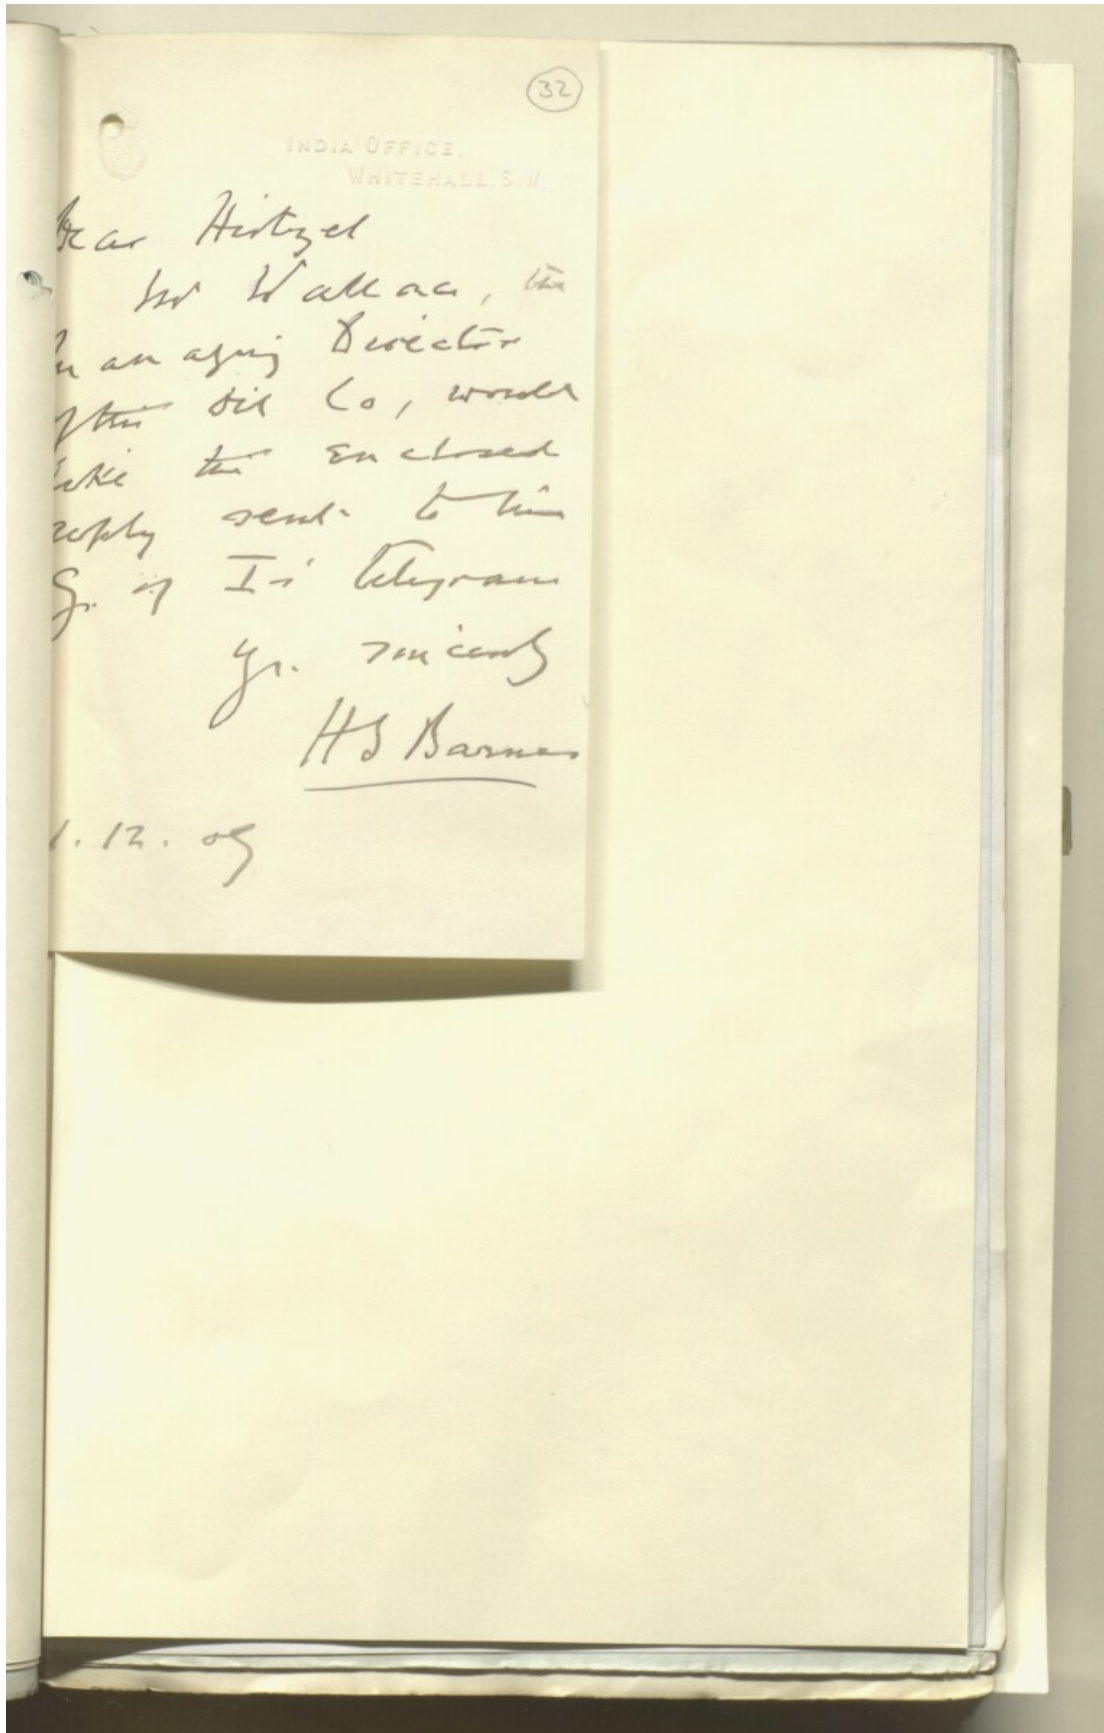 32
INDIA OFFICE,
WHITEHALL, S.W.
Dear Hirtzel
Mr Wallace, the
Managing Director
of the Oil Co, would
like the enclosed
reply sent to the
G. of I's telegram
Yr. sincerely
H S Barnes
1.12.09